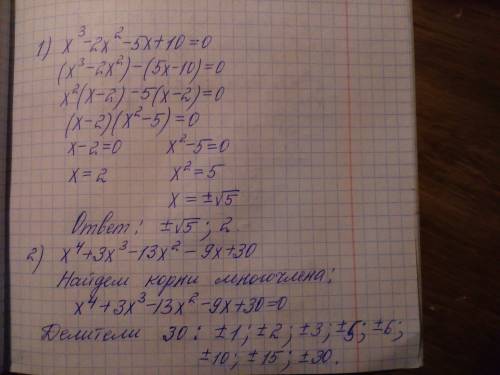 1) x³-2x²-5x+10=0
(x³-2x²)-(5x-10)=0
x²(x-2)-5(x-2)=0
(x-2)(x²-5)=0
x-2=0 x²-5=0
x=2 x²=5
x=±√5
Ответ: ±√5; 2.
2) x⁴+3x³-13x²-9x+30
Найдем корни многочлена:
x⁴+3x³-13x²-9x+30=0
Делители 30: ±1; ±2; ±3; ±5; ±6;
±10; ±15; ±30.